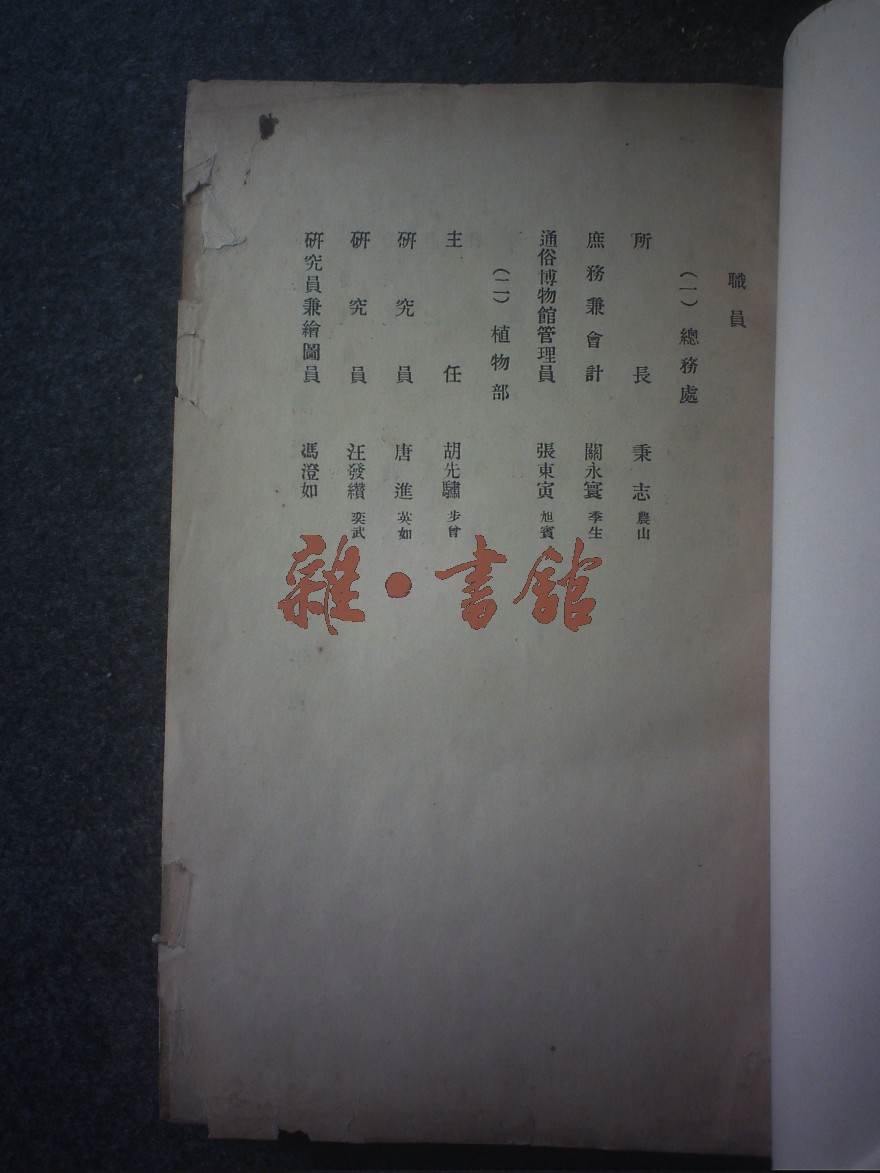 職員
（一）總務處
所長 秉志 農山
庶務兼會計 關永寰 季生
通俗博物館管理員 張東寅 旭賓
（二）植物部
主任 胡先驌 步曾
研究員 唐進 英如
研究員 汪發纘 奕武
研究員兼繪圖員 馮澄如
雜·書館